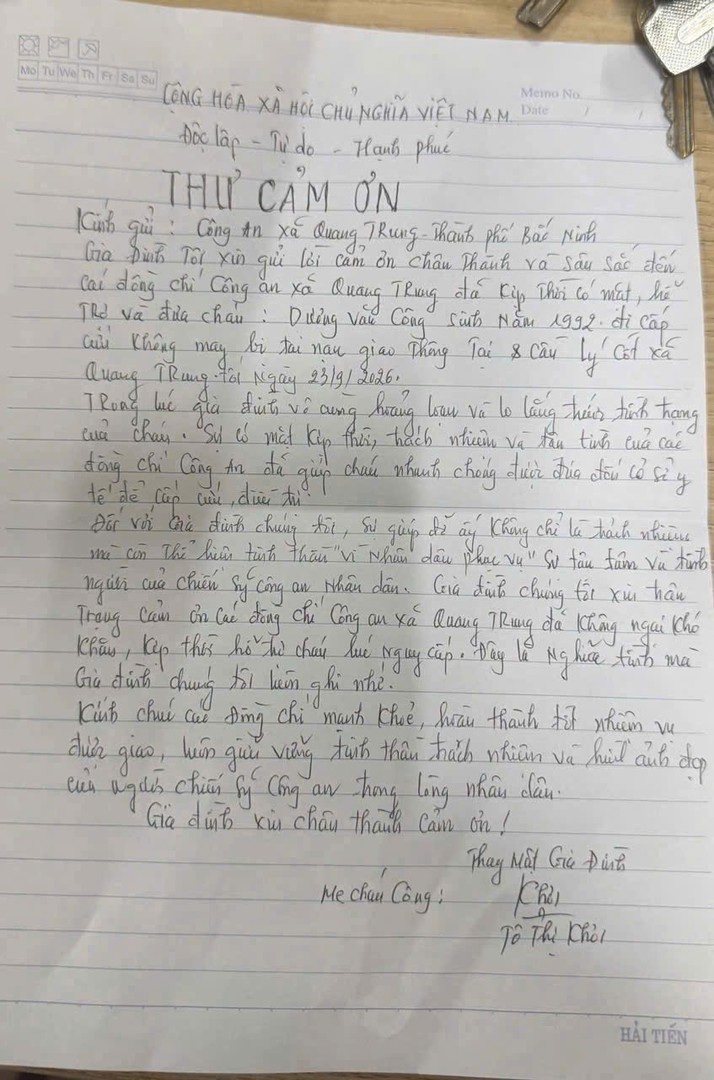 Mo Tu We Th Fr Sa Su
Memo No.
Date / /
CỘNG HÒA XÃ HỘI CHỦ NGHĨA VIỆT NAM
Độc lập - Tự do - Hạnh phúc
THƯ CẢM ƠN
Kính gửi : Công An xã Quang TRung - Thành phố Bắc Ninh
Gia Đình Tôi xin gửi lời cảm ơn chân thành và sâu sắc đến
các đồng chí Công an xã Quang TRung đã kịp Thời có mặt, hỗ
TRợ và đưa cháu : Dương Văn Công sinh Năm 1992. đi cấp
cứu không may bị tai nạn giao Thông Tại Cầu Lý Cốt xã
Quang TRung. tối Ngày 23/9/2026.
TRong lúc gia đình vô cùng hoảng loạn và lo lắng trước tình trạng
của cháu. Sự có mặt kịp thời, trách nhiệm và tận tình của các
đồng chí Công An đã giúp cháu nhanh chóng được đưa đến cơ sở y
tế để cấp cứu, điều trị.
Đối với Gia đình chúng tôi, sự giúp đỡ ấy không chỉ là trách nhiệm
mà còn Thể hiện tinh thần "Vì Nhân dân phục vụ" sự tận tâm và tình
người của chiến sỹ công an Nhân dân. Gia đình chúng tôi xin trân
Trọng cảm ơn các đồng chí Công an xã Quang TRung đã không ngại khó
khăn, kịp thời hỗ trợ cháu lúc nguy cấp. Đây là Nghĩa tình mà
Gia đình chúng tôi luôn ghi nhớ.
Kính chúc các Đồng chí mạnh khoẻ, hoàn thành tốt nhiệm vụ
được giao, luôn giữ vững tinh thần trách nhiệm và hình ảnh đẹp
của người chiến sỹ Công an trong lòng nhân dân.
Gia đình xin chân thành cảm ơn !
Thay Mặt Gia Đình
Mẹ cháu Công :
Tô Thị
HẢI TIẾN